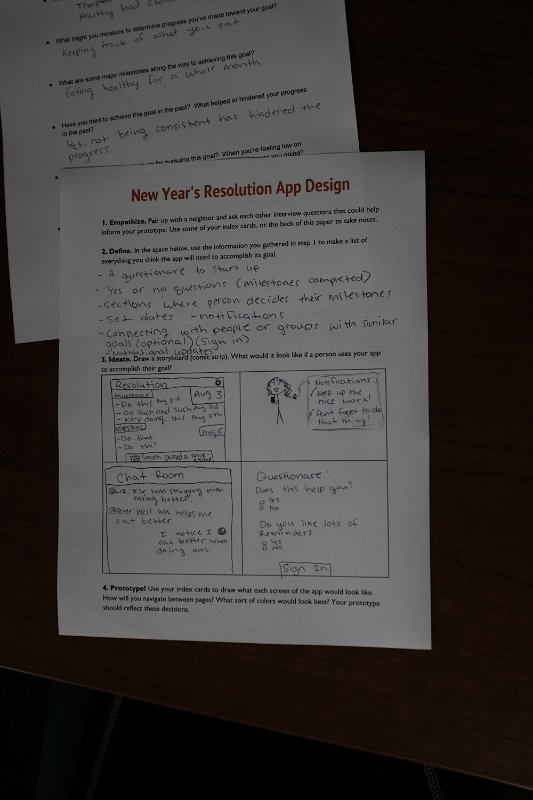 Healthy food
• What might you measure to determine progress you've made toward your goal?
Keeping track of what you eat.
• What are some major milestones along the way to achieving this goal?
Eating healthy for a whole month.
• Have you tried to achieve this goal in the past? What helped or hindered your progress
in the past?
Yes, not being consistent has hindered the
progress.
for pursuing this goal? When you're feeling low on
New Year's Resolution App Design
1. Empathize. Pair up with a neighbor and ask each other interview questions that could help
inform your prototype. Use some of your index cards, or the back of this paper to take notes.
2. Define. In the space below, use the information you gathered in step 1 to make a list of
everything you think the app will need to accomplish its goal.
- A questionare to start up
- Yes or no questions (milestones completed)
- Sections where person decides their milestones
- Set dates - notifications
- Connecting with people or groups with similar
goals (optional) (Sign in)
- Motivational updates
3. Ideate. Draw a storyboard (comic strip). What would it look like if a person uses your app
to accomplish their goal?
Resolution
Milestone 1
Aug 3
- Do this Aug 3rd
- Do such and such Aug 7th
- Keep doing this Aug 5th
Milestone
Aug 5
- Do that
- Do this
Sarah passed a mile-
Notifications
Keep up the
nice work!
Don't forget to do
that thing!
Chat Room
Liz: I've been struggling with
eating better
Peter: Well um helps me
eat better
I notice I
eat better when
doing um
Questionare:
Does this help you?
Yes
No
Do you like lots of
Reminders
Yes
No
Sign In
4. Prototype! Use your index cards to draw what each screen of the app would look like.
How will you navigate between pages? What sort of colors would look best? Your prototype
should reflect these decisions.